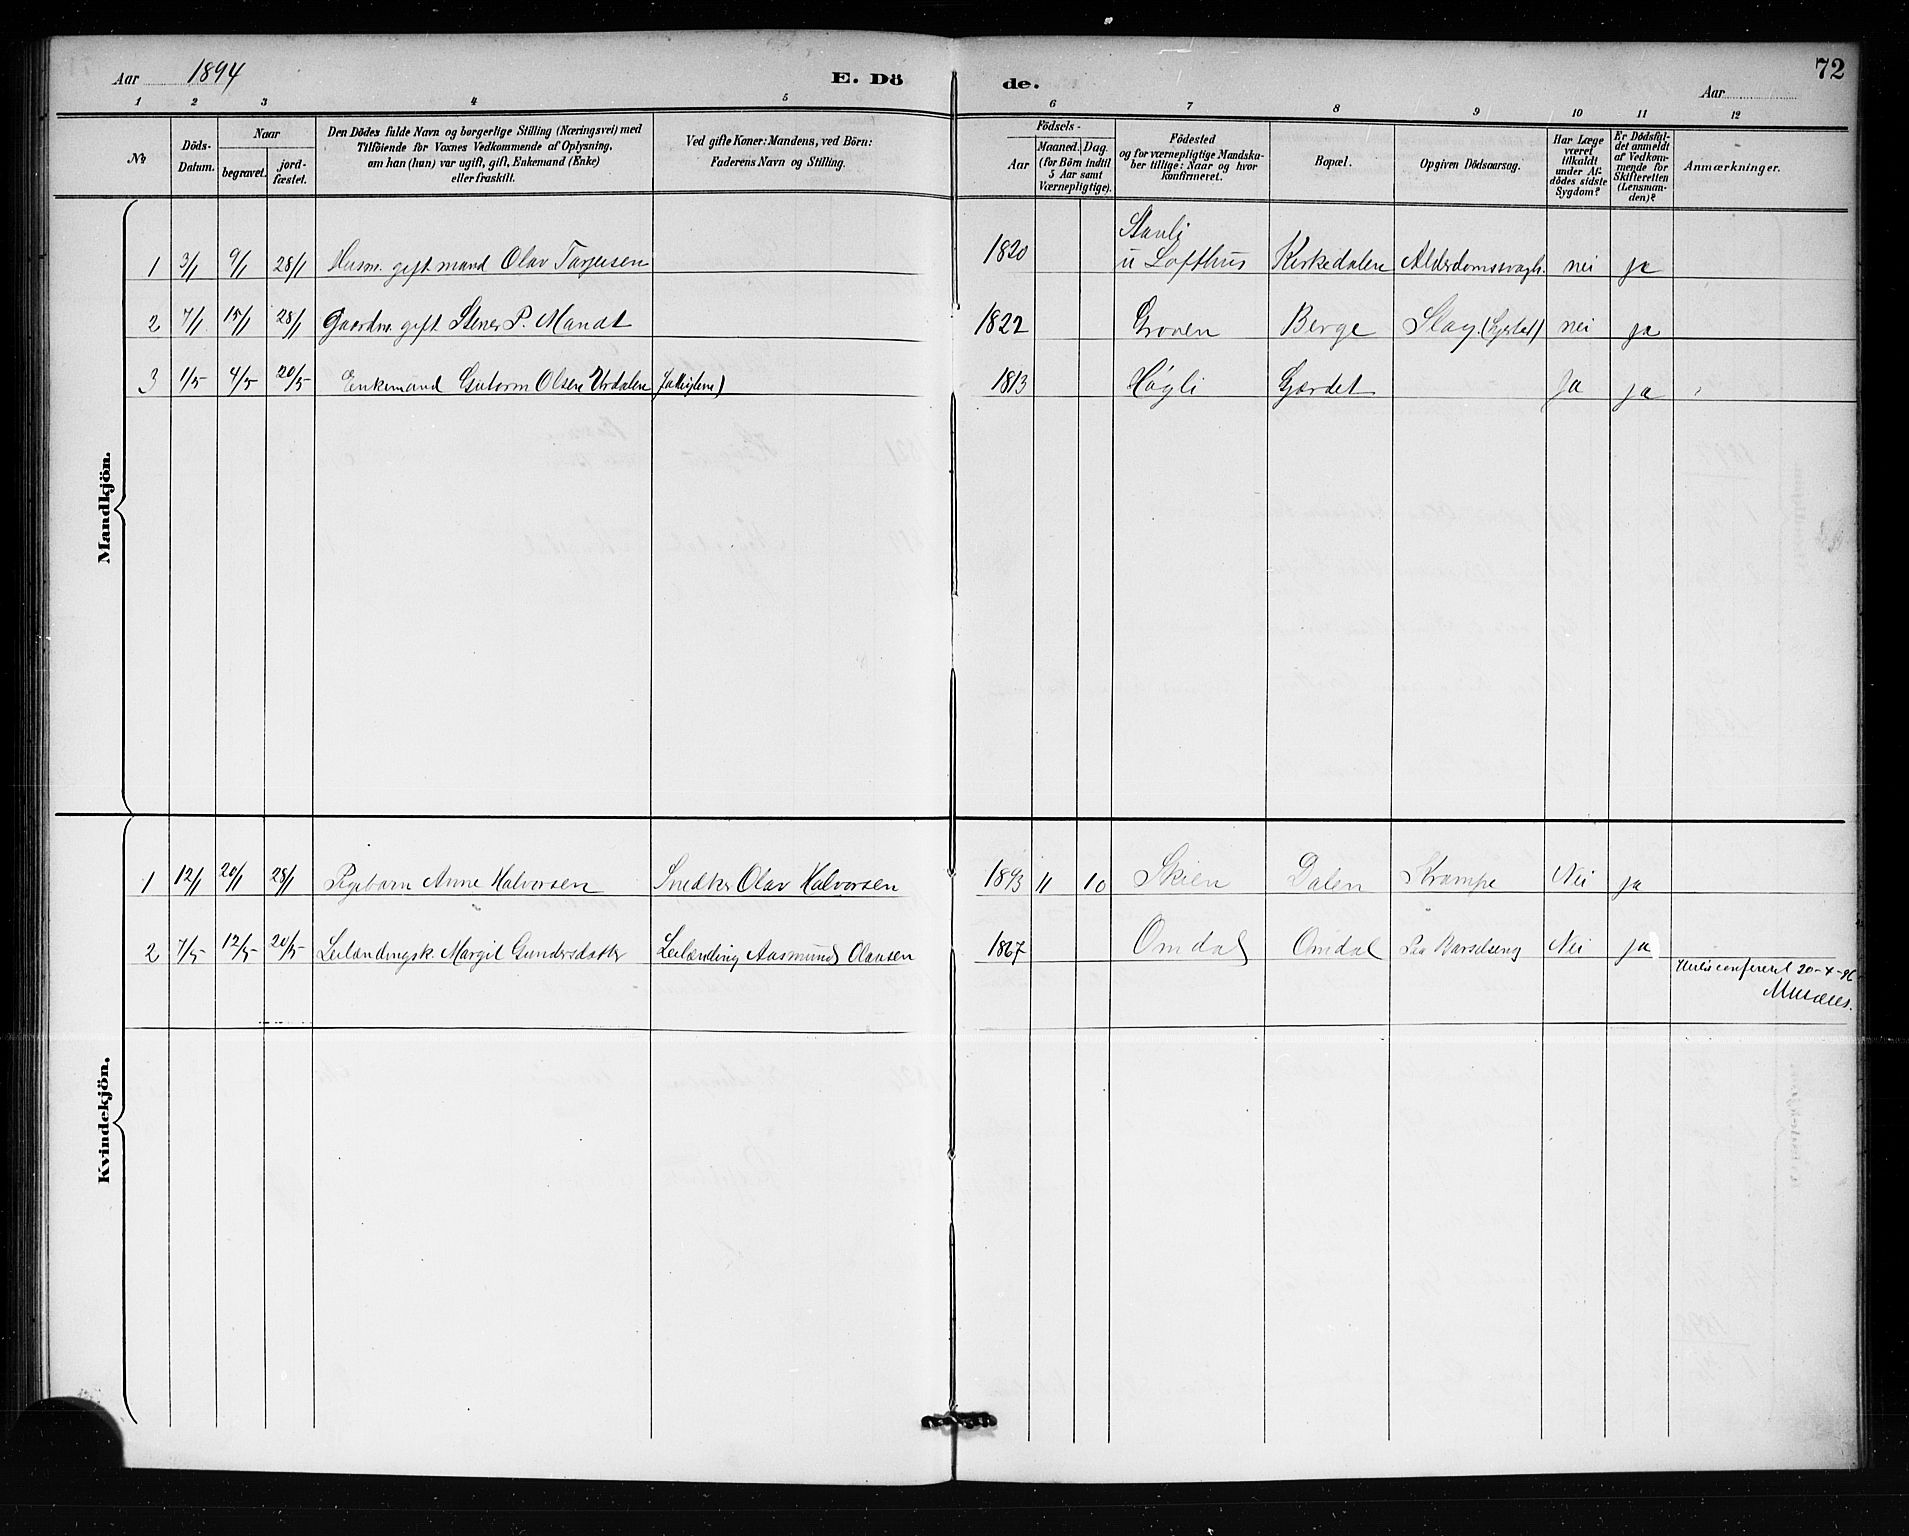 Aar 1894
E. Dö
de.
72
Aar
1 2 3 4 5 6 7 8 9 10 11 12
No
Döds-
Datum.
Naar
begravet.
jord-
fæstet.
Den Dödes fulde Navn og borgerlige Stilling (Næringsvei) med
Tilföiende for Voxnes Vedkommende af Oplysning,
om han (hun) var ugift, gift, Enkemand (Enke)
eller fraskilt.
Ved gifte Koner: Mandens, ved Börn:
Faderens Navn og Stilling.
Födsels-
Aar
Maaned. Dag.
(for Börn indtil
5 Aar samt
Værnepligtige).
Födested
og for værnepligtige Mandska-
ber tillige: Naar og hvor
Konfirmeret.
Bopæl.
Opgiven Dödsaarsag.
Har Læge
været
tilkaldt
under Af-
dödes sidste
Sygdom?
Er Dödsfal-
det anmeldt
af Vedkom-
mende for
Skifteretten
(Lensman-
den)?
Anmærkninger.
Mandkjön.
1 3/1 9/1 28/1 Husm. gift mand Olav Tarjeisen 1820 u Lofthus Kirkedalen Alderdomssvagh. nei ja
2 7/1 15/1 28/1 Gaardm. gift Stener P. Mandt 1822 Groven Berge Slag nei ja
3 1/5 4/5 20/5 Enkemand Gutorm Olsen Urdalen 1813 Høgli Gjordet Ja ja
Kvindekjön.
1 12/1 20/1 28/1 Pigebarn Anne Halvorsen Snedker Olav Halvorsen 1893 11 10 Skien Dalen Krampe Nei ja
2 7/5 12/5 20/5 Leilændingsk. Margit Gundersdatter Leilænding Aasmund Olavsen 1867 Omdal Omdal Paa Barselseng Nei ja
confereret 20-4-96